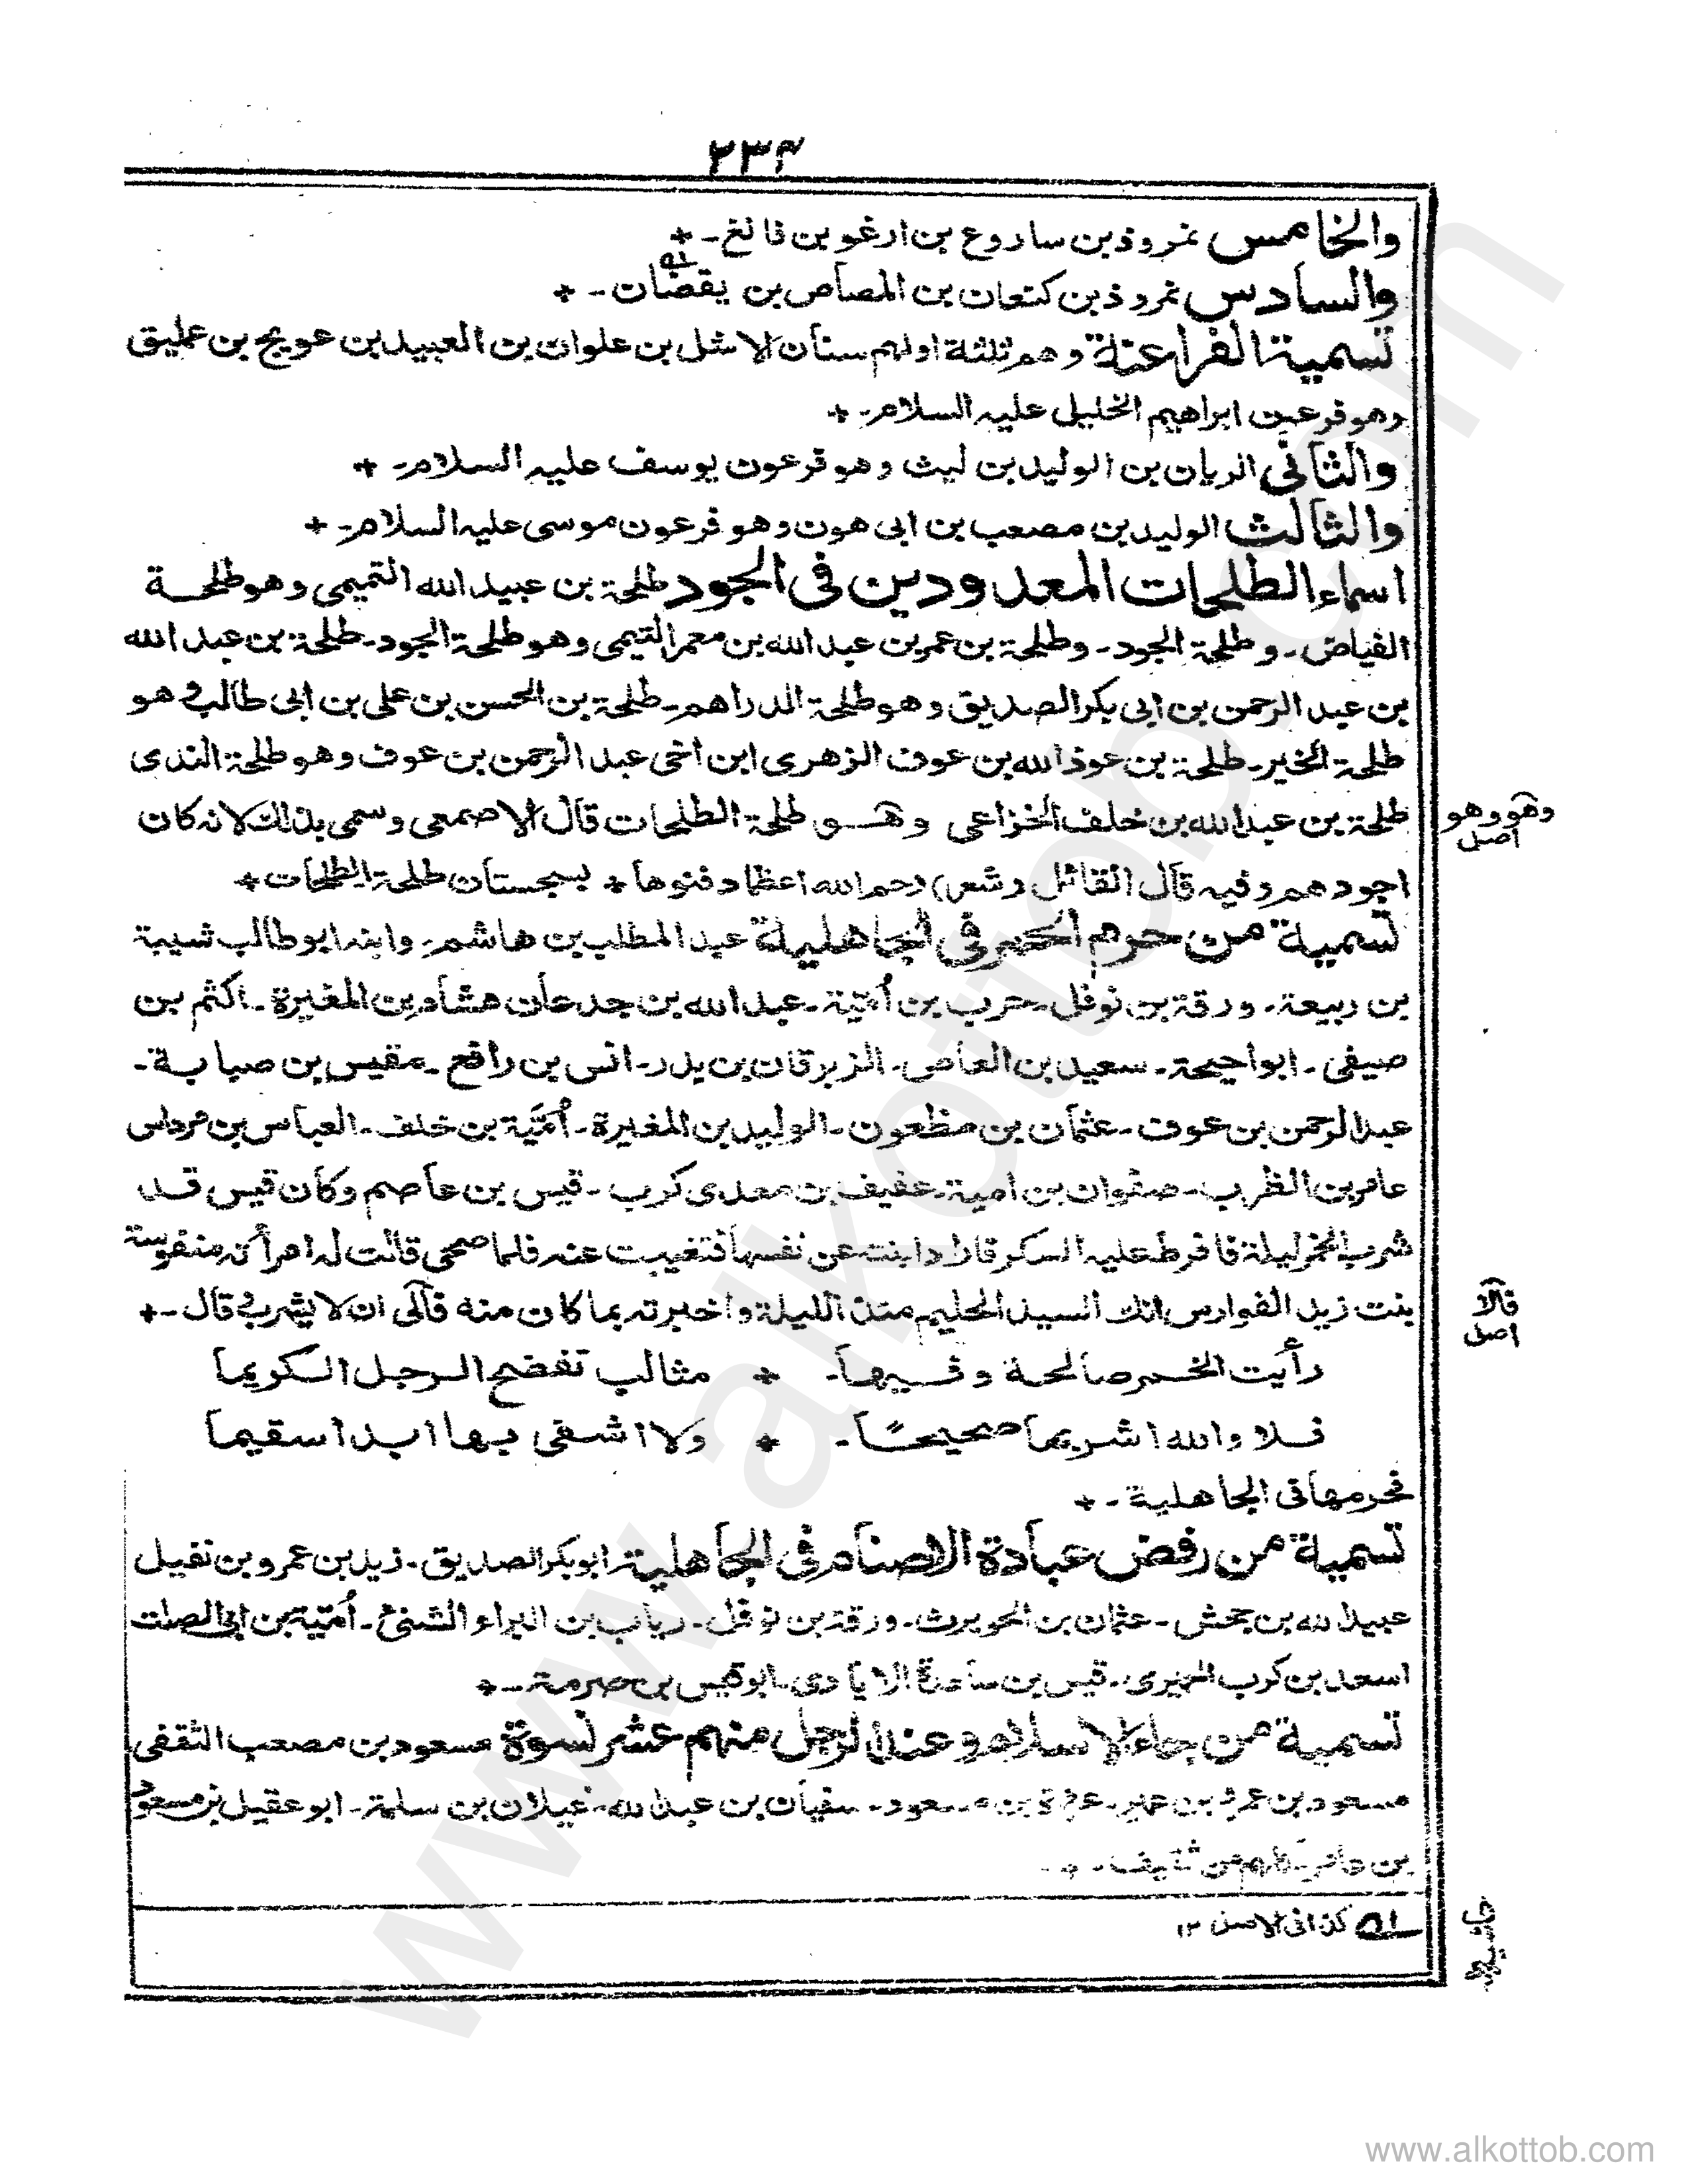 ٢٣٤
والخامس نمروذ بن ساروع بن ارغو بن فالغ - +
والسادس نمروذ بن كنعان بن المصاص بن يقضان - +
تسمية الفراعنة وهم ثلثة اولهم سنان الاشل بن علوان بن العبيد بن عويج بن عمليق
وهو فرعون ابراهيم الخليل عليه السلام - +
والثانى الريان بن الوليد بن ليث وهو فرعون يوسف عليه السلام - +
والثالث الوليد بن مصعب بن ابى هون وهو فرعون موسى عليه السلام - +
اسماء الطلحات المعدودين فى الجود طلحة بن عبيد الله التميمى وهو طلحة
الفياض - وطلحة الجود - وطلحة بن عمر بن عبد الله بن معمر التيمى وهو طلحة الجود - طلحة بن عبد الله
بن عبد الرحمن بن ابى بكر الصديق وهو طلحة الدراهم - طلحة بن الحسن بن على بن ابى طالب وهو
طلحة الخير - طلحة بن عوذ الله بن عوف الزهرى ابن اخى عبد الرحمن بن عوف وهو طلحة الندى
طلحة بن عبد الله بن خلف الخزاعى وهو طلحة الطلحات قال الاصمعى وسمى بذلك لانه كان
وهو وهو
اصل
اجودهم وفيه قال القائل (شعر) رحم الله اعظما دفنوها + بسجستان طلحة الطلحات +
تسمية من حرم الخمر فى الجاهلية عبد المطلب بن هاشم - وابنه ابو طالب شيبة
بن ربيعة - ورقة بن نوفل - حرب بن أمّية - عبد الله بن جدعان هشام بن المغيرة - اكثم بن
صيفى - ابو احيحة - سعيد بن العاص - الزبرقان بن بدر - انس بن رافع - مقيس بن صبابة -
عبد الرحمن بن عوف - عثمان بن مظعون - الوليد بن المغيرة - أمّية بن خلف - العباس بن مرداس
عامر بن الظرب - صفوان بن امية - عفيف بن معدى كرب - قيس بن عاصم وكان قيس قد
شرب الخمر ليلة فافرط عليه السكر فاراد ابنته عن نفسها فتغيبت عنه فلما صحى قالت له امرأته منفوسة
بنت زيد الفوارس انك السيد الحليم منذ الليلة واخبرته بما كان منه فآلى ان لا يشرب وقال - +
فالا
اصل
رأيت الخمر صالحة وفيها - + مثالب تفضح الرجل الكريما
فلا والله اشربها صحيحًا - + ولا اشفى بها ابدا سقيما
فحرمها فى الجاهلية - +
تسمية من رفض عبادة الاصنام فى الجاهلية ابو بكر الصديق - زيد بن عمرو بن نفيل
عبيد الله بن جحش - عثمان بن الحويرث - ورقة بن نوفل - رباب بن البراء الشنى - أمّية بن ابى الصلت
اسعد بن كرب الحميرى - قيس بن ساعدة الايادى - ابو قيس بن صرمة - +
تسمية من جاء الاسلام وعند الرجل منهم عشر نسوة مسعود بن مصعب الثقفى
مسعود بن عمرو بن عمير - عروة بن مسعود - سفيان بن عبد الله - غيلان بن سلمة - ابو عقيل بن مسعود
بن عامر - كلهم من ثقيف - +
حاشيه
له كذا فى الاصل ١٢
www.alkottob.com
www.alkottob.com